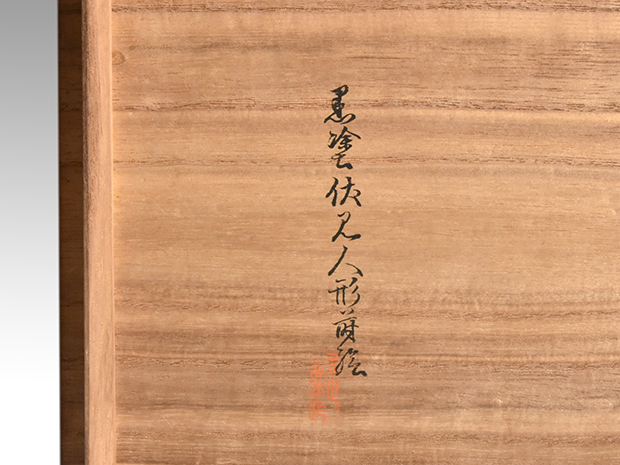 黒塗伏見人形蒔絵